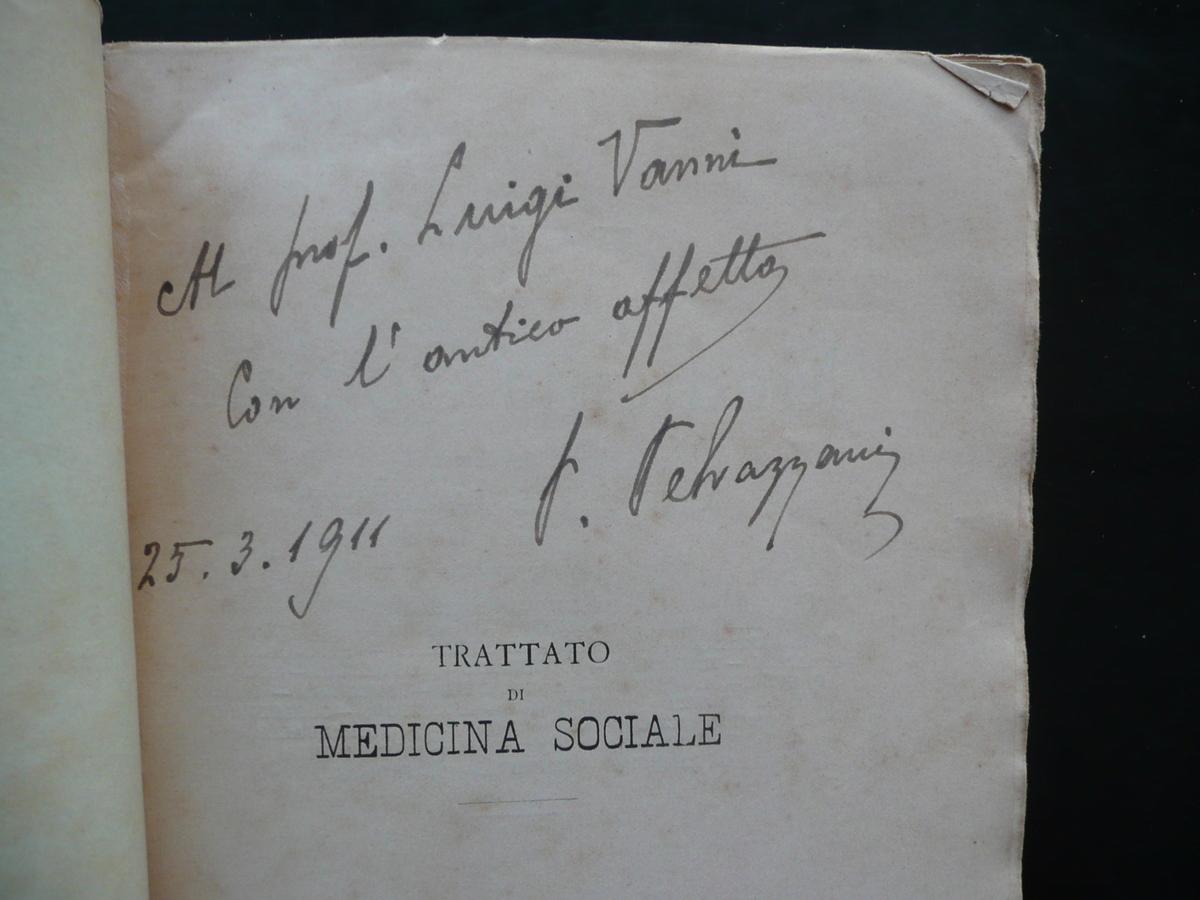 Al prof. Luigi Vanni
Con l'antico affetto
P. Petrazzani
25.3.1911
TRATTATO
DI
MEDICINA SOCIALE